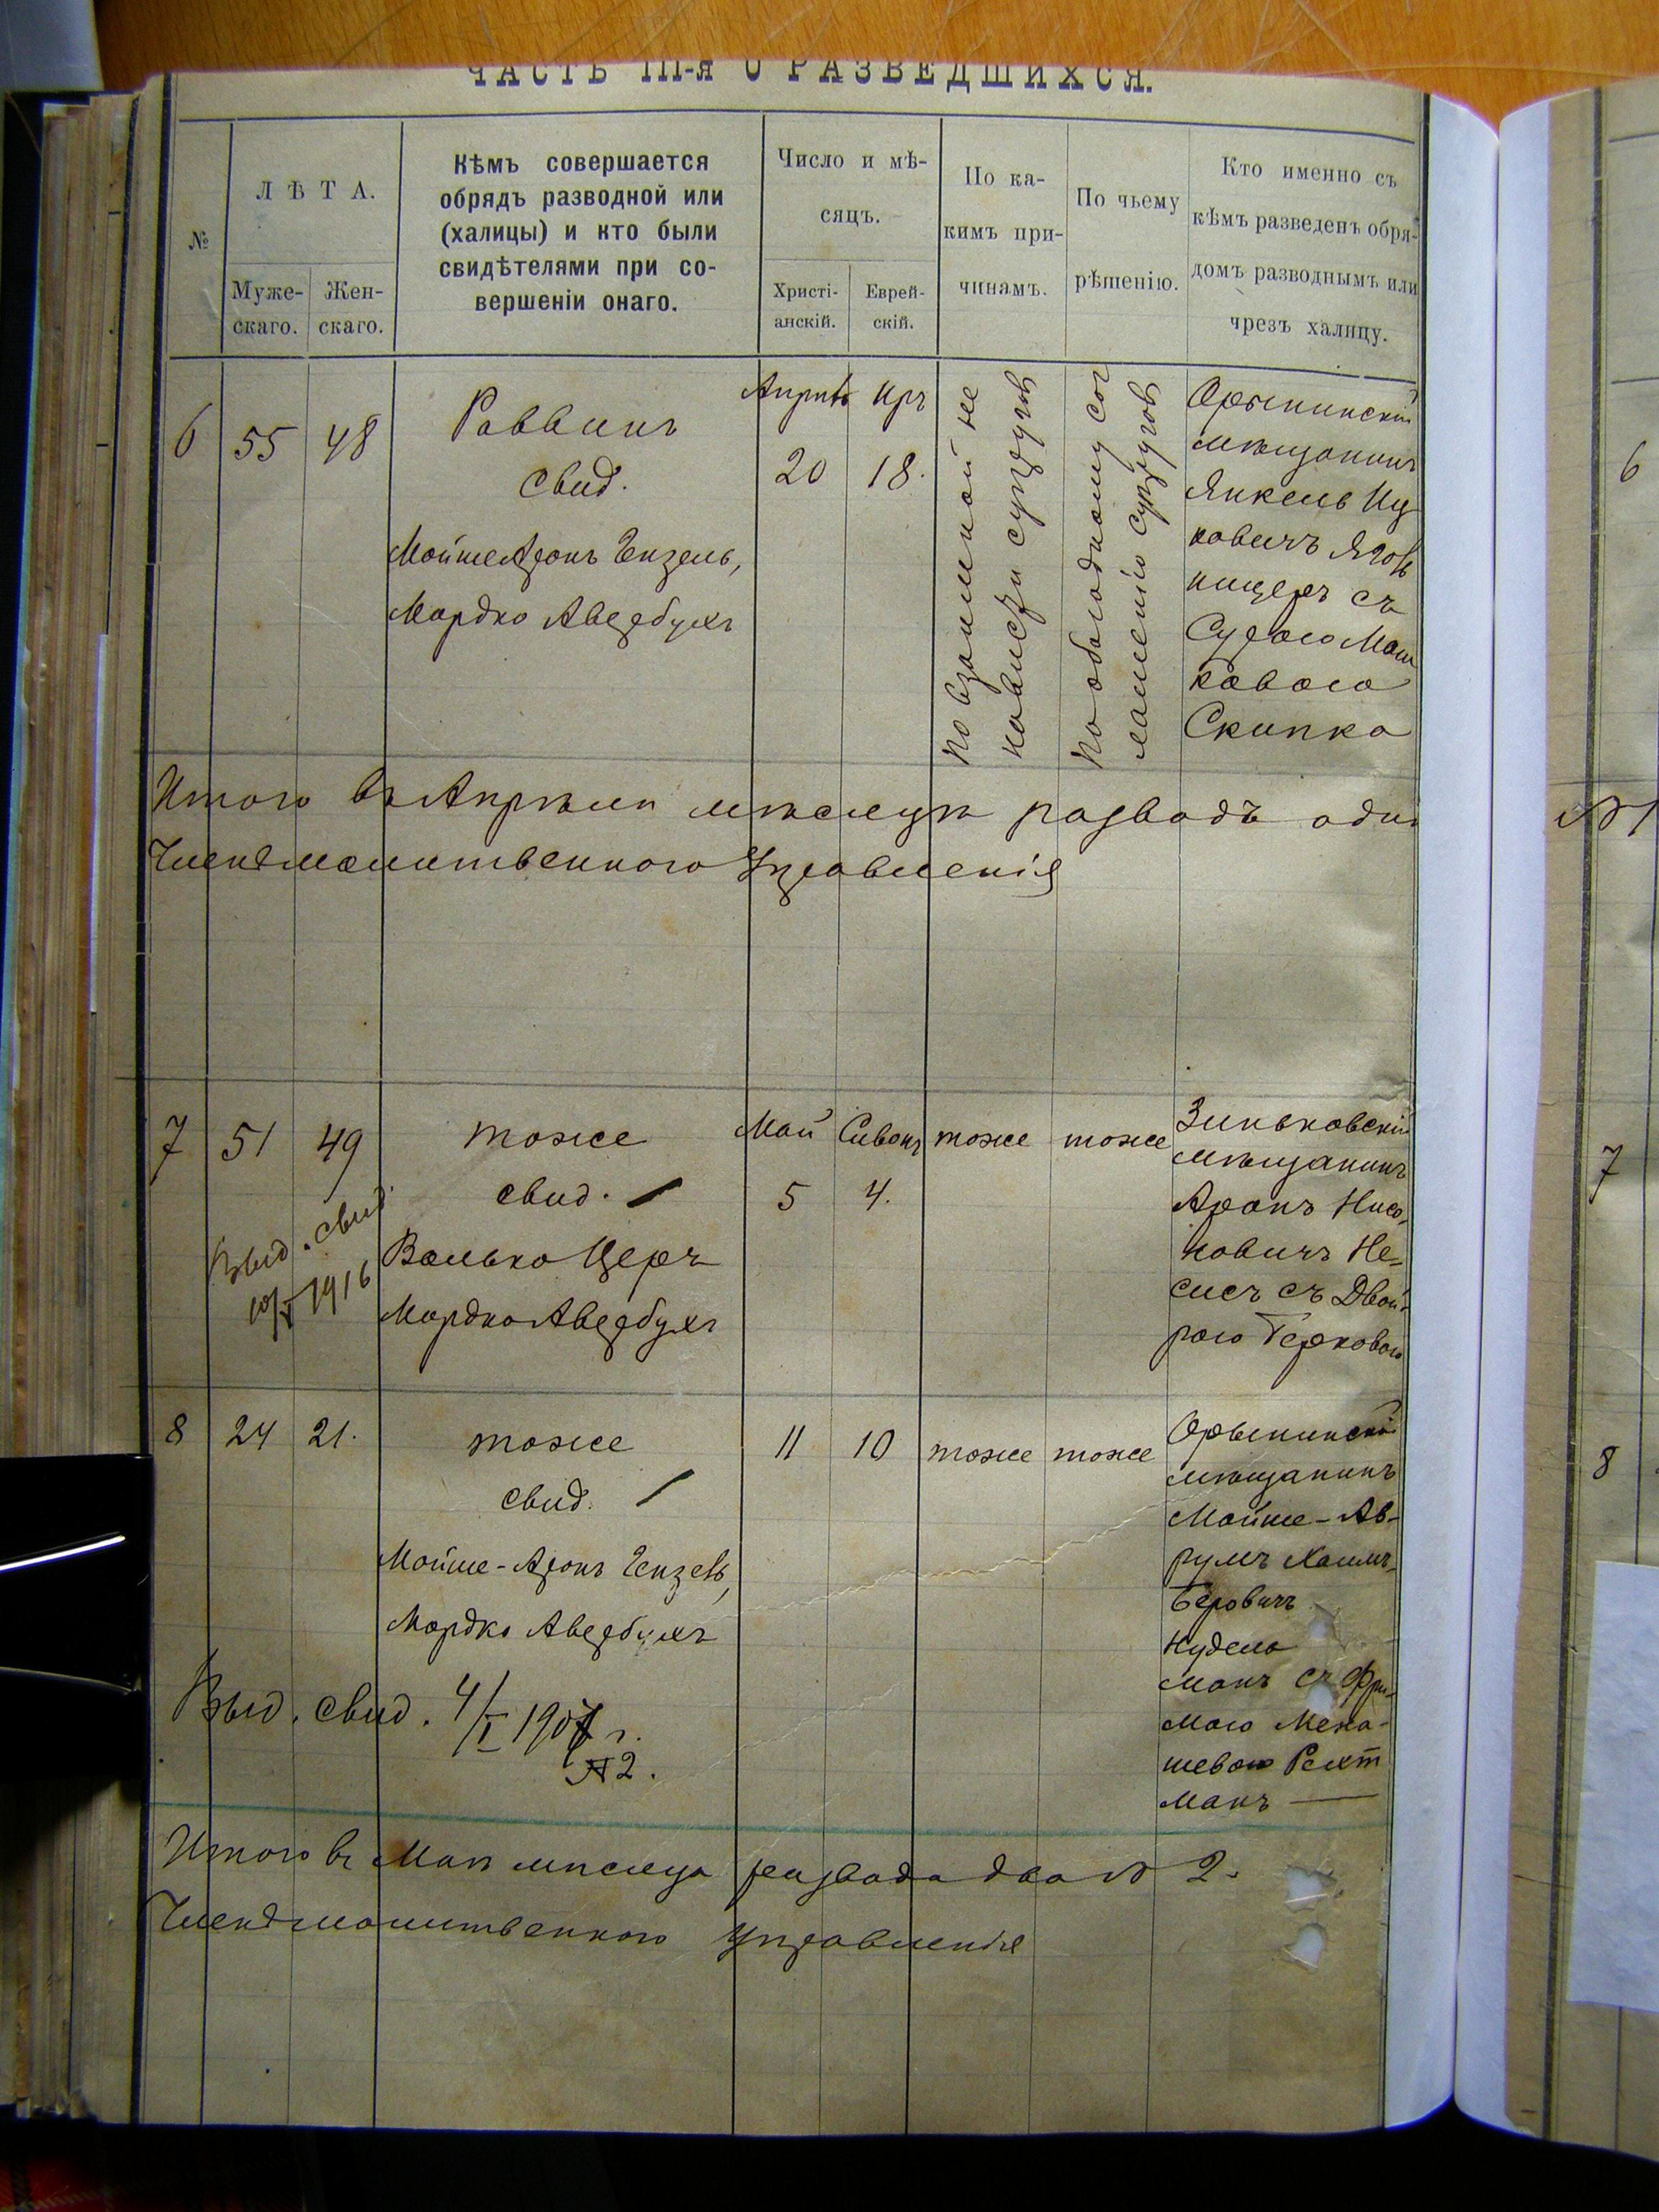 ЧАСТЬ III-Я О РАЗВЕДШИХСЯ.
№
ЛѢТА.
Муже-
скаго.
Жен-
скаго.
Кѣмъ совершается
обрядъ разводной или
(халицы) и кто были
свидѣтелями при со-
вершеніи онаго.
Число и мѣ-
сяцъ.
Христі-
анскій.
Еврей-
скій.
По ка-
кимъ при-
чинамъ.
По чьему
рѣшенію.
Кто именно съ
кѣмъ разведенъ обря-
домъ разводнымъ или
чрезъ халицу.
6
55
48
Раввинъ
свид.
Мойше Аронъ Гензель,
Мордко Авербухъ
Апрѣль
20
Иръ
18.
По взаимной не
нависти супруговъ
По обоюдному сог
лашенію супруговъ
Орынинскій
мѣщанинъ
Янкель Иц
ковичъ
ницеръ съ
Сурою Мош
ковою
Скипка
Итого въ Апрѣлѣ мѣсяцѣ разводъ одинъ
Члены молитвеннаго Управленія
7
51
49
тоже
свид.
Волько Церъ
Мордко Авербухъ
Выд. свид.
10/V 1916
Май
5
Сивонъ
4.
тоже
тоже
Зиньковскій
мѣщанинъ
Аронъ Нисо-
новичъ Не-
сисъ съ Двой-
рою Берковою
8
24
21.
тоже
свид.
Мойше-Аронъ Гензель,
Мордко Авербухъ
11
10
тоже
тоже
Орынинскій
мѣщанинъ
Мойше-Ав-
румъ Хаимъ-
Беровичъ
Нудель
манъ съ Фри-
мою Мена-
шевою Рехт
манъ
Выд. свид. 4/I 1907 г.
№ 2.
Итого въ Маѣ мѣсяцѣ развода два № 2.
Члены молитвеннаго Управленія
6
№ 1
7
8